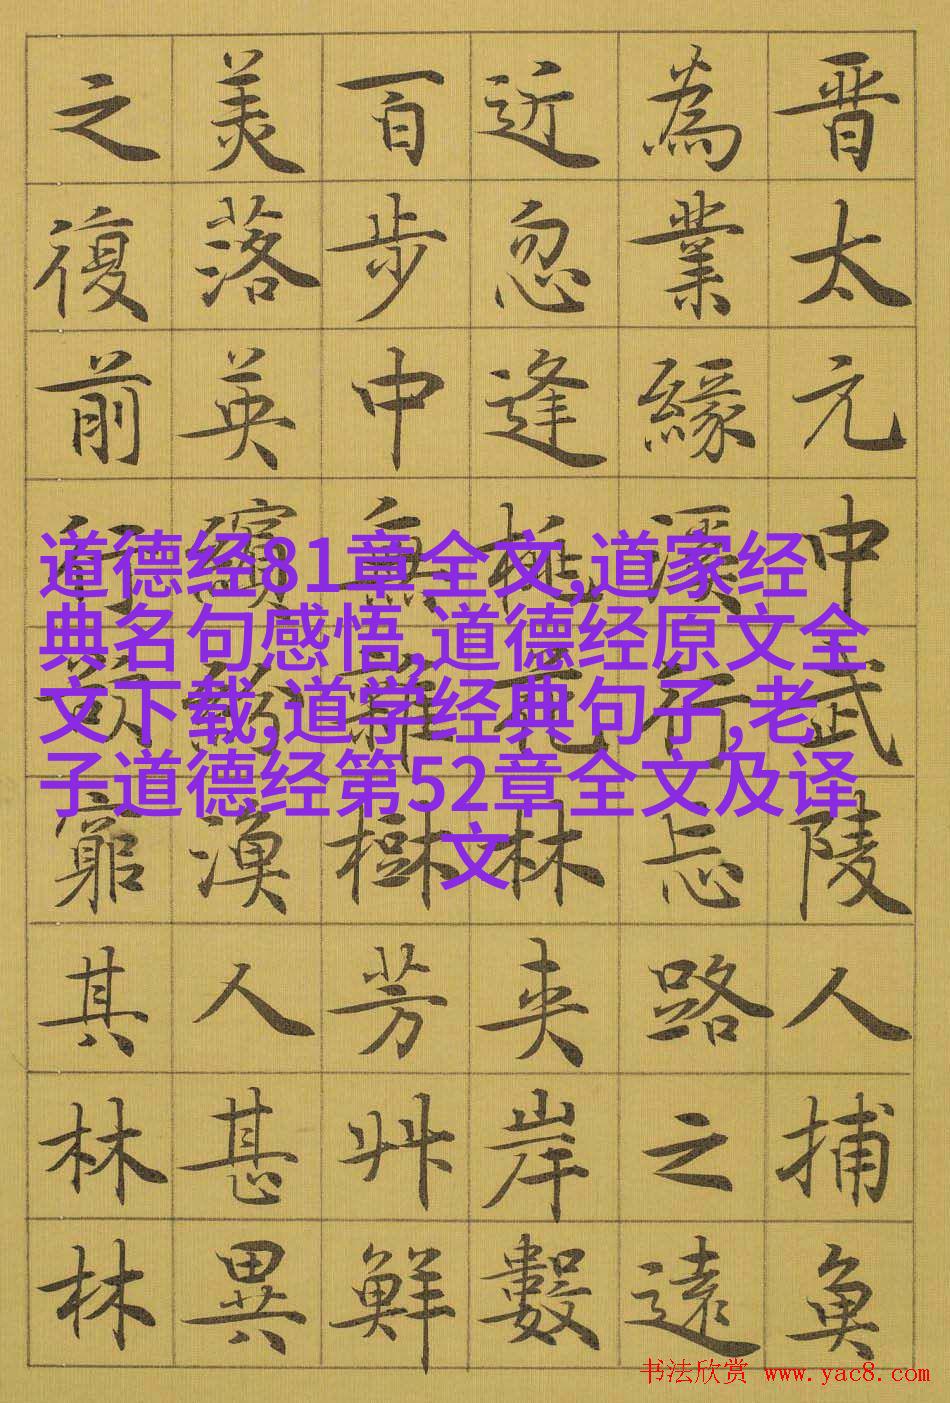 晋太元中武陵人捕魚
為業緣溪行忘路之遠
近忽逢桃花林夾岸數
百步中無雜樹芳艸鮮
美落英繽紛漁人甚異
之復前行欲窮其林林
道德经81章全文,道家经
典名句感悟,道德经原文全
文下载,道学经典句子,老
子道德经第52章全文及译
文
书法欣赏 www.yac8.com